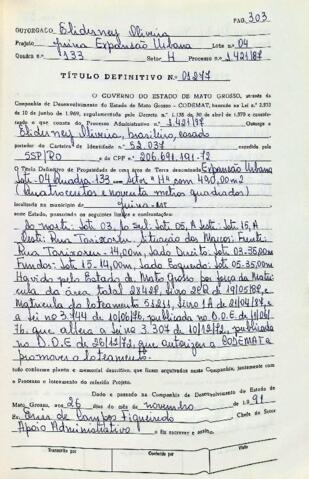 PAG. 303
OUTORGADO Elidersney Oliveira
Projeto Juina Expansão Urbana Lote n.º 04
Quadra n.º 133 Setor H Processo n.º 1.421/87
TÍTULO DEFINITIVO N.º 01277
O GOVERNO DO ESTADO DE MATO GROSSO, através da
Companhia de Desenvolvimento do Estado de Mato Grosso - CODEMAT, com base na Lei n.º 3.933
de 10 de junho de 1969, regulamentada pelo Decreto n.º 1.138 de 30 de abril de 1970 e conside-
rando o que consta do Processo Administrativo n.º 1.421/87 Outorga a
Elidersney Oliveira, brasileiro, casado
portador da Carteira de Identidade n.º 52.037 expedida pela
SSP/RO e do CPF n.º 206.691.191-72
O Título Definitivo de Propriedade de uma área de Terra denominada Expansão Urbana
Lote-04 Quadra 133 Setor "H" com 490,00m2
(Quatrocentos e noventa metros quadrados)
localizada no município de Juina-MT
neste Estado, possuindo os seguintes limites e confrontações:
Ao norte: Lote 03, Ao Sul: Lote 05, A Leste: Lote 15, A
Oeste: Rua Tarizoren. Situação dos Marcos: Frente:
Rua Tarizoren - 14,00m, Lado Direito: Lote 03-35,00m
Fundos: Lote 15-14,00m, Lado Esquerdo: Lote 05-35,00m
Havido pelo Estado de Mato Grosso por força da Matrí-
cula da área total 28428, Livro 2 de 19/05/82, e
Matrícula do loteamento 51211, Livro 1A de 21/04/87, e
a Lei n.º 3.744 de 10/06/76, publicada no D.O.E. de 11/06/
76, que altera a Lei n.º 3.307 de 10/12/72, publicada
no D.O.E. de 26/12/72, que autoriza a CODEMAT a
promover o loteamento.
tudo conforme planta e memorial descritivo, que ficam arquivados nesta Companhia, juntamente com
o Processo e loteamento do referido Projeto.
Dado e passado na Companhia de Desenvolvimento do Estado de
Mato Grosso, aos 26 dias do mês de novembro de 1.991
Eu, Eres de Campos Figueiredo Chefe do Setor
Apoio Administrativo o fiz escrever e assino.
Transcrito por Conferido por Visto